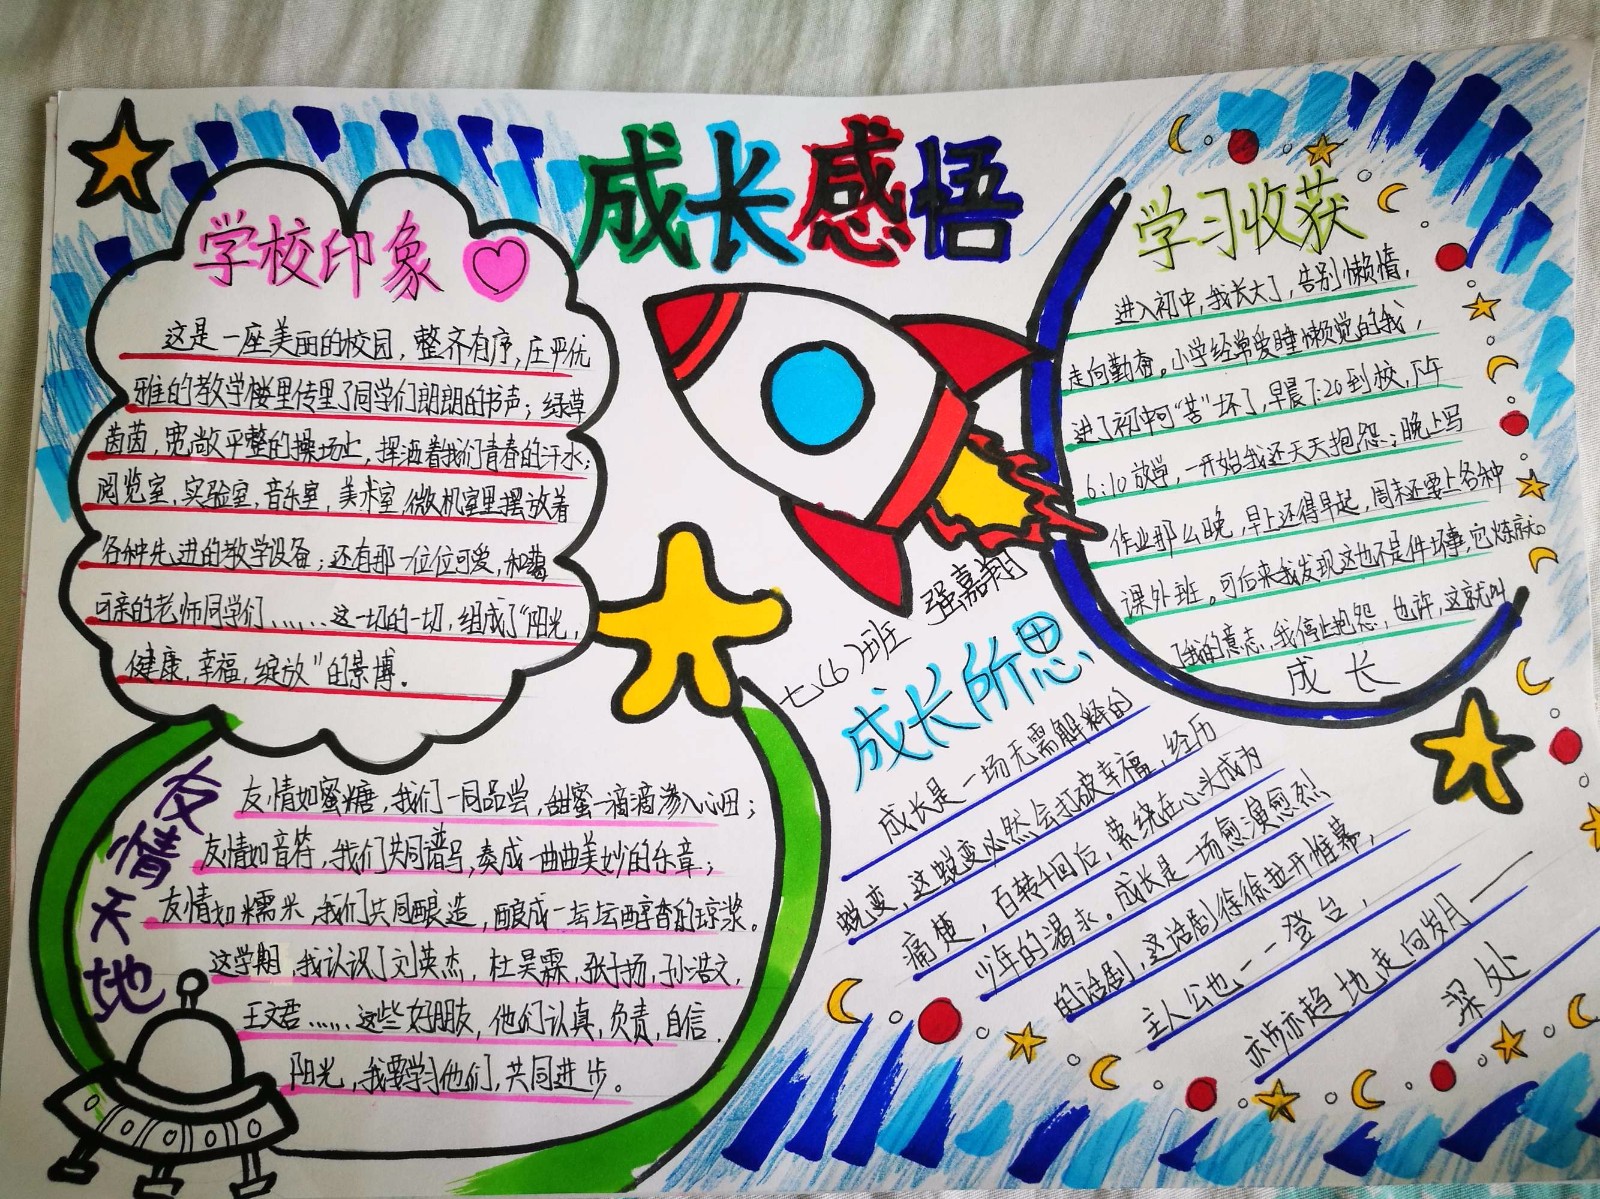 成长感悟
学校印象
这是一座美丽的校园，整齐有序，庄严优
雅的教学楼里传里了同学们朗朗的书声；绿草
茵茵，宽敞平整的操场上，挥洒着我们青春的汗水；
阅览室，实验室，音乐室，美术室，微机室里摆放着
各种先进的教学设备；还有那一位位可爱，和蔼
可亲的老师同学们……这一切的一切，组成了“阳光，
健康，幸福，绽放”的景博。
学习收获
进入初中，我长大了，告别懒惰，
走向勤奋。小学经常爱睡懒觉的我，
进了初中可“苦”坏了，早晨7:20到校，下午
6:10放学，一开始我还天天抱怨：晚上写
作业那么晚，早上还得早起，周末还要上各种
课外班。可后来我发现这也不是件坏事，它炼就
了我的意志，我停止抱怨，也许，这就叫
成长
七（6）班 强嘉翔
友情天地
友情如蜜糖，我们一同品尝，甜蜜一滴滴渗入心田；
友情如音符，我们共同谱写，奏成一曲曲美妙的乐章；
友情如糯米，我们共同酿造，酿成一坛坛醇香的琼浆。
这学期，我认识了刘英杰，杜昊霖，张子扬，孙浩文，
王文君……这些好朋友，他们认真，负责，自信，
阳光，我要学习他们，共同进步。
成长所思
成长是一场无需解释的
蜕变，这蜕变必然会打破幸福，经历
痛楚，百转千回后，萦绕在心头成为
少年的渴求。成长是一场愈演愈烈
的话剧，这话剧徐徐拉开帷幕，
主人公也一一登台，
亦步亦趋地走向岁月——
深处